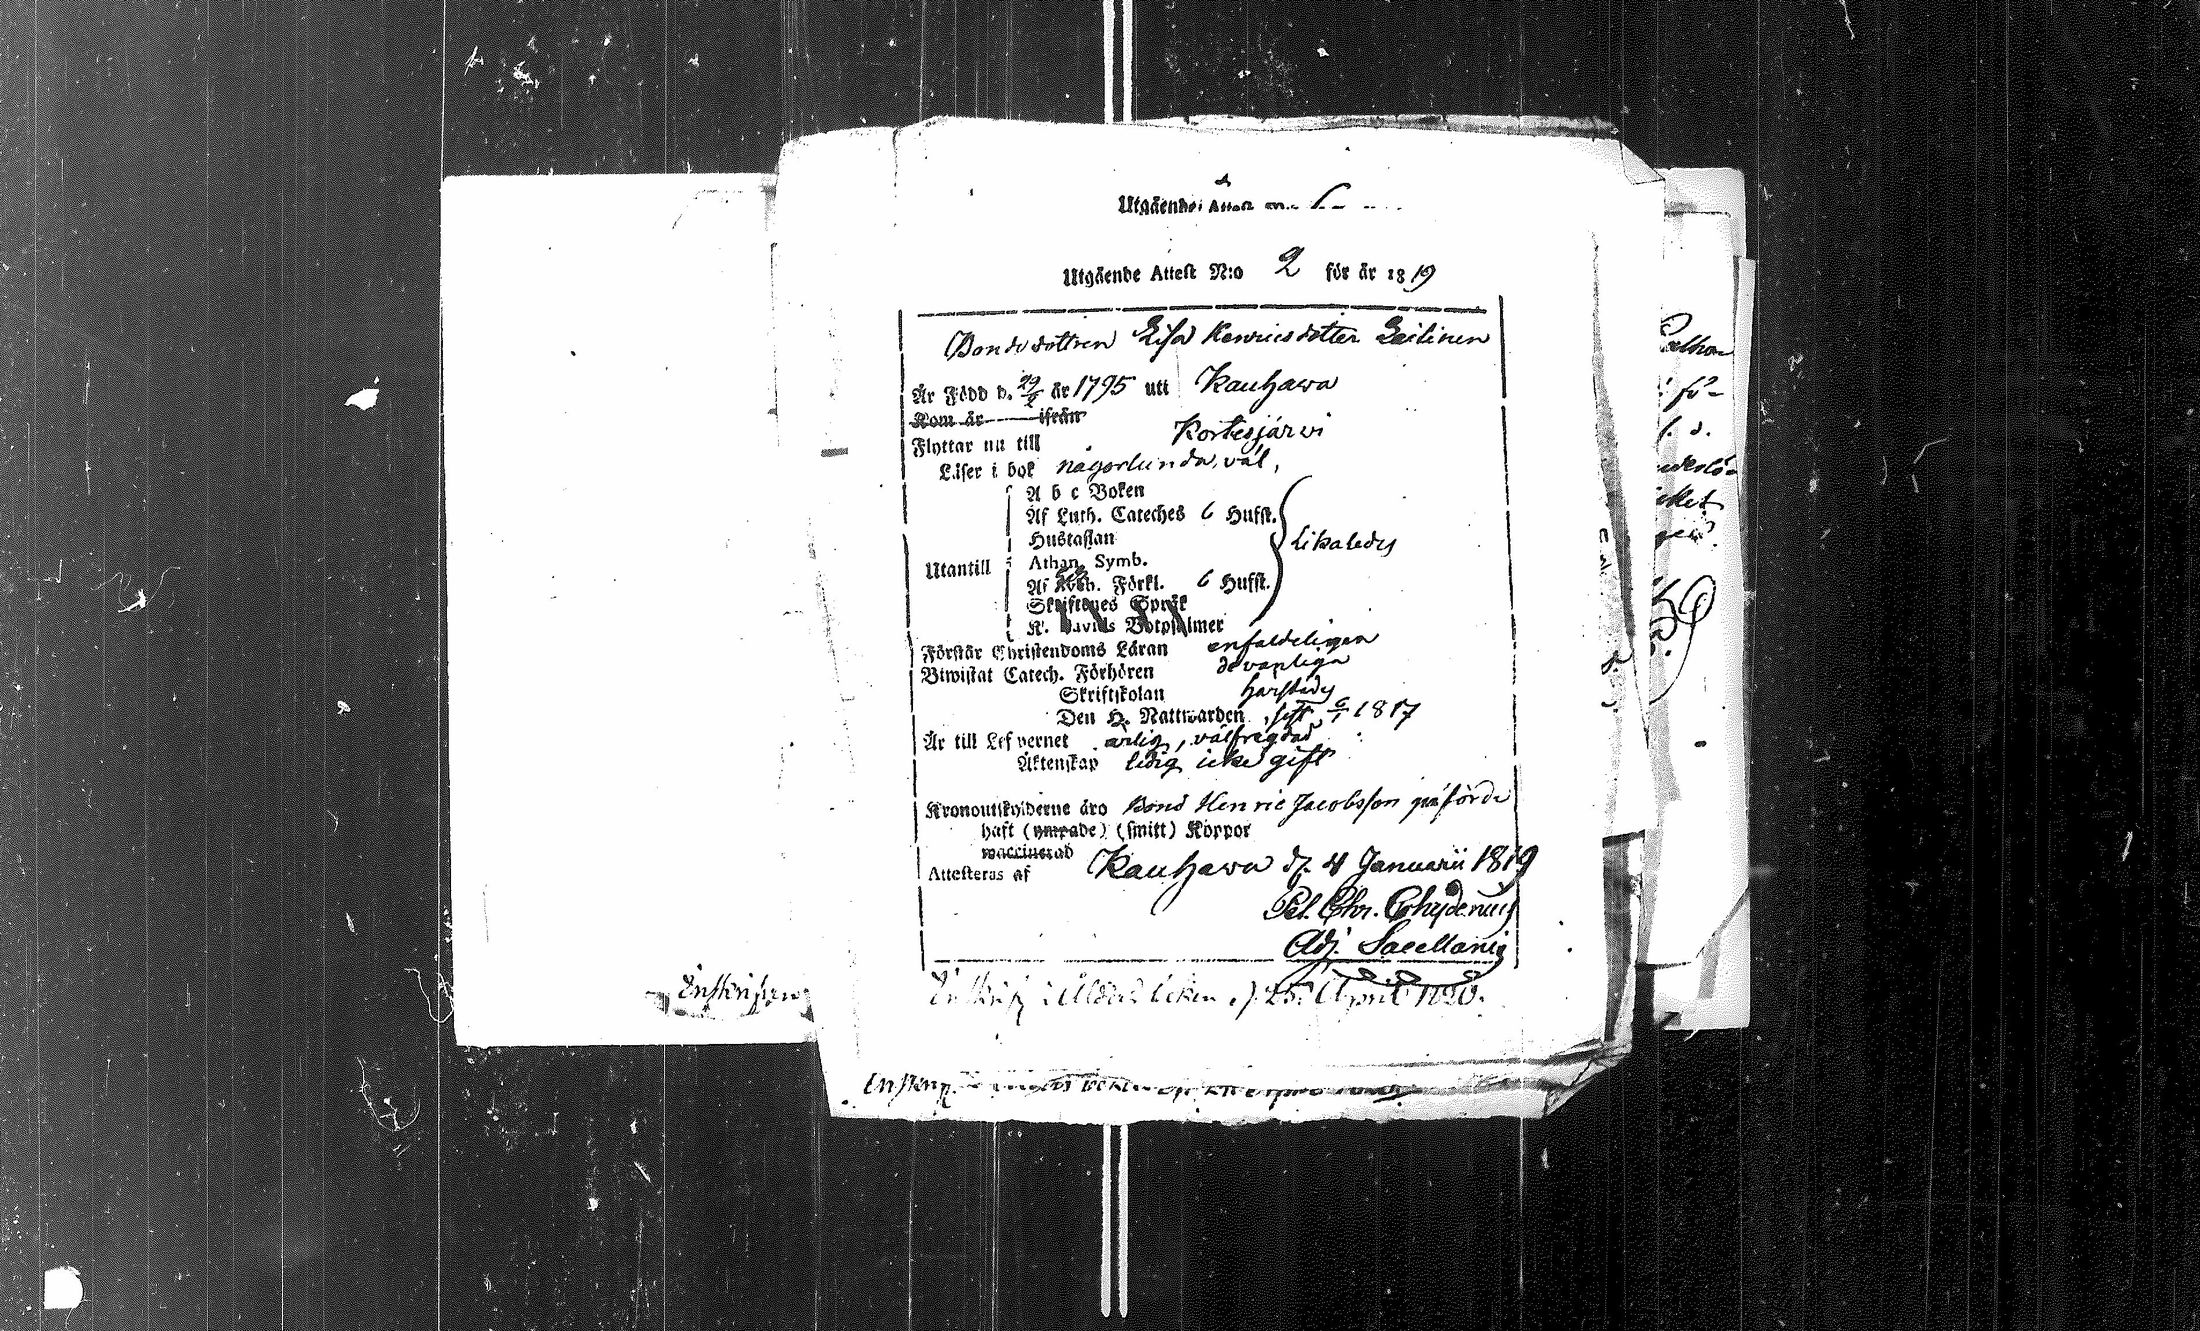 Utgående Attest
Utgående Attest N:o 2 för år 1819
Bondedottren Lisa Henricsdotter Lailinen
Är Född d. 29/2 år 1795 uti Kauhawa
Kom år ifrån
Flyttar nu till Kortesjärwi
Läser i bok någorlunda väl,
A b c Boken
Af Luth. Cateches 6 Hufst.
Hustaflan
likaledes
Utantill
Athan. Symb.
Af Förkl. 6 Hufst.
Skriftenes Språk
K. Davids Botpsalmer
Förstår Christendoms Läran enfaldeligen
Biwistat Catech. Förhören de vanliga
Skriftskolan härstädes
Den H. Nattwarden sist 6/1 1817
Är till Lefvernet ärlig, välfregdad
Äktenskap ledig icke gift
Kronoutskylderne äro Bond Henric Jacobsson påförde
haft (ympade) (smitt) Koppor
waccinerad
Attesteras af Kauhawa d. 4 Januarii 1819
Pet. Chr. Chydenius
Adj. Sacellanig
Enskrifven
Enskrifv. i Ålders boken d. 25 April 1820.
Enskrifv.